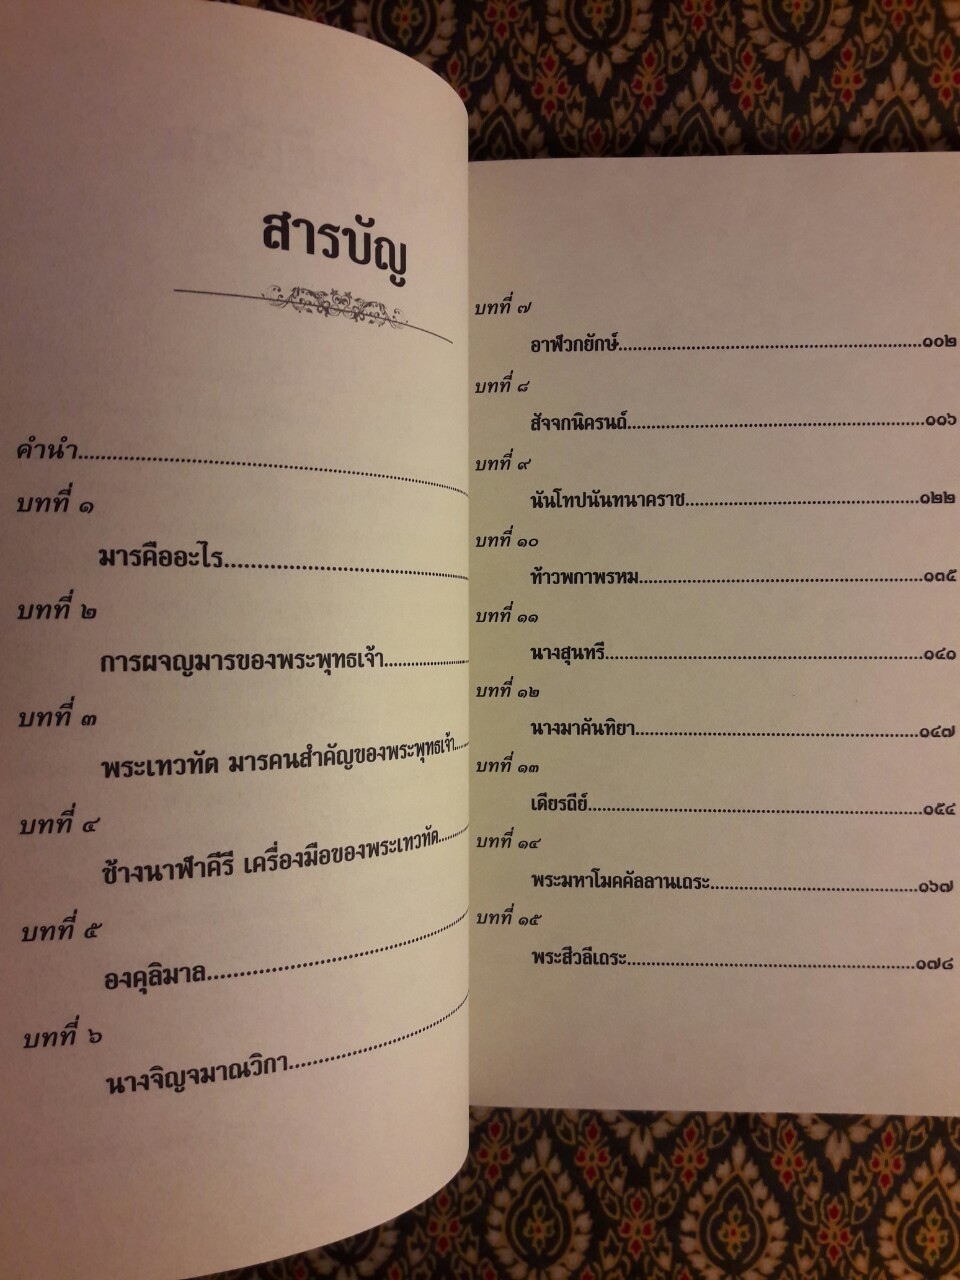 สารบัญ
คำนำ
บทที่ ๑
มารคืออะไร
บทที่ ๒
การผจญมารของพระพุทธเจ้า
บทที่ ๓
พระเทวทัต มารคนสำคัญของพระพุทธเจ้า
บทที่ ๔
ช้างนาฬาคีรี เครื่องมือของพระเทวทัต
บทที่ ๕
องคุลิมาล
บทที่ ๖
นางจิญจมาณวิกา
บทที่ ๗
อาฬวกยักษ์ ๑๐๒
บทที่ ๘
สัจจกนิครนถ์ ๑๑๖
บทที่ ๙
นันโทปนันทนาคราช ๑๒๒
บทที่ ๑๐
ท้าวพกาพรหม ๑๓๕
บทที่ ๑๑
นางสุนทรี ๑๔๐
บทที่ ๑๒
นางมาคันทิยา ๑๔๗
บทที่ ๑๓
เดียรถีย์ ๑๕๔
บทที่ ๑๔
พระมหาโมคคัลลานเถระ ๑๖๗
บทที่ ๑๕
พระสีวลีเถระ ๑๗๘